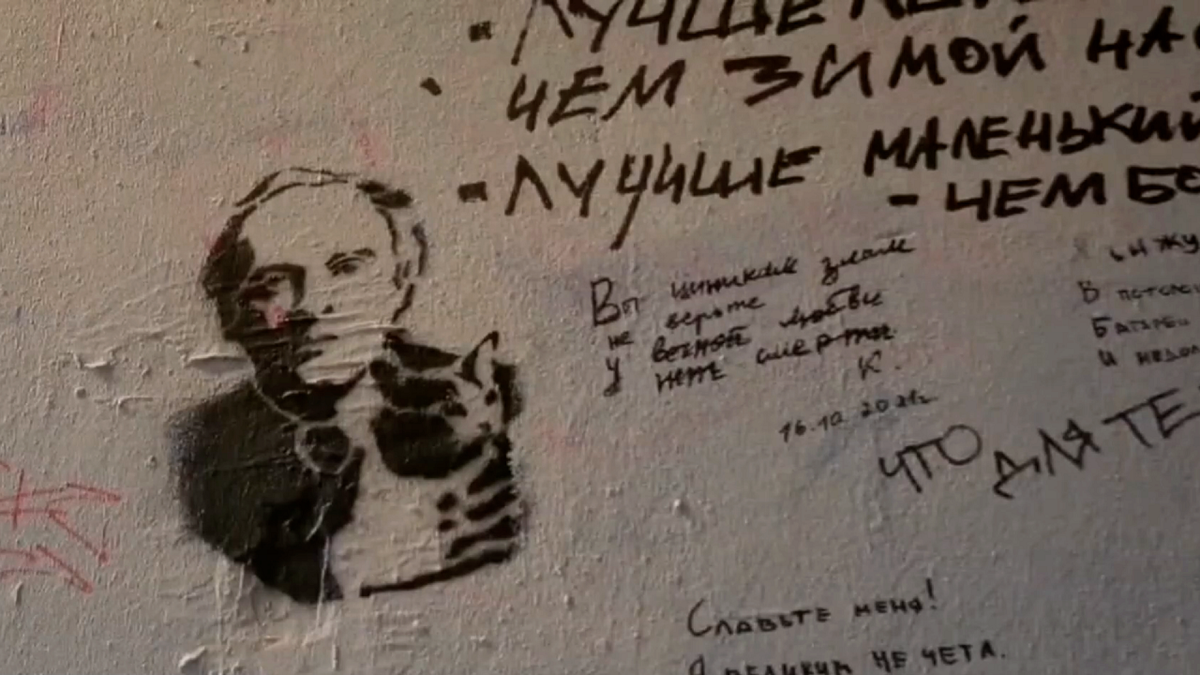 - ЛУЧШЕ
ЧЕМ ЗИМОЙ НА
- ЛУЧШЕ МАЛЕНЬКИЙ
- ЧЕМ БО
Вы циникам злым
не верьте
вечной любви
У нет смерти
К.
16.10.2021г.
В потоло
И недо
ЧТО ДЛЯ ТЕ
Славьте меня!
Я великим не чета.